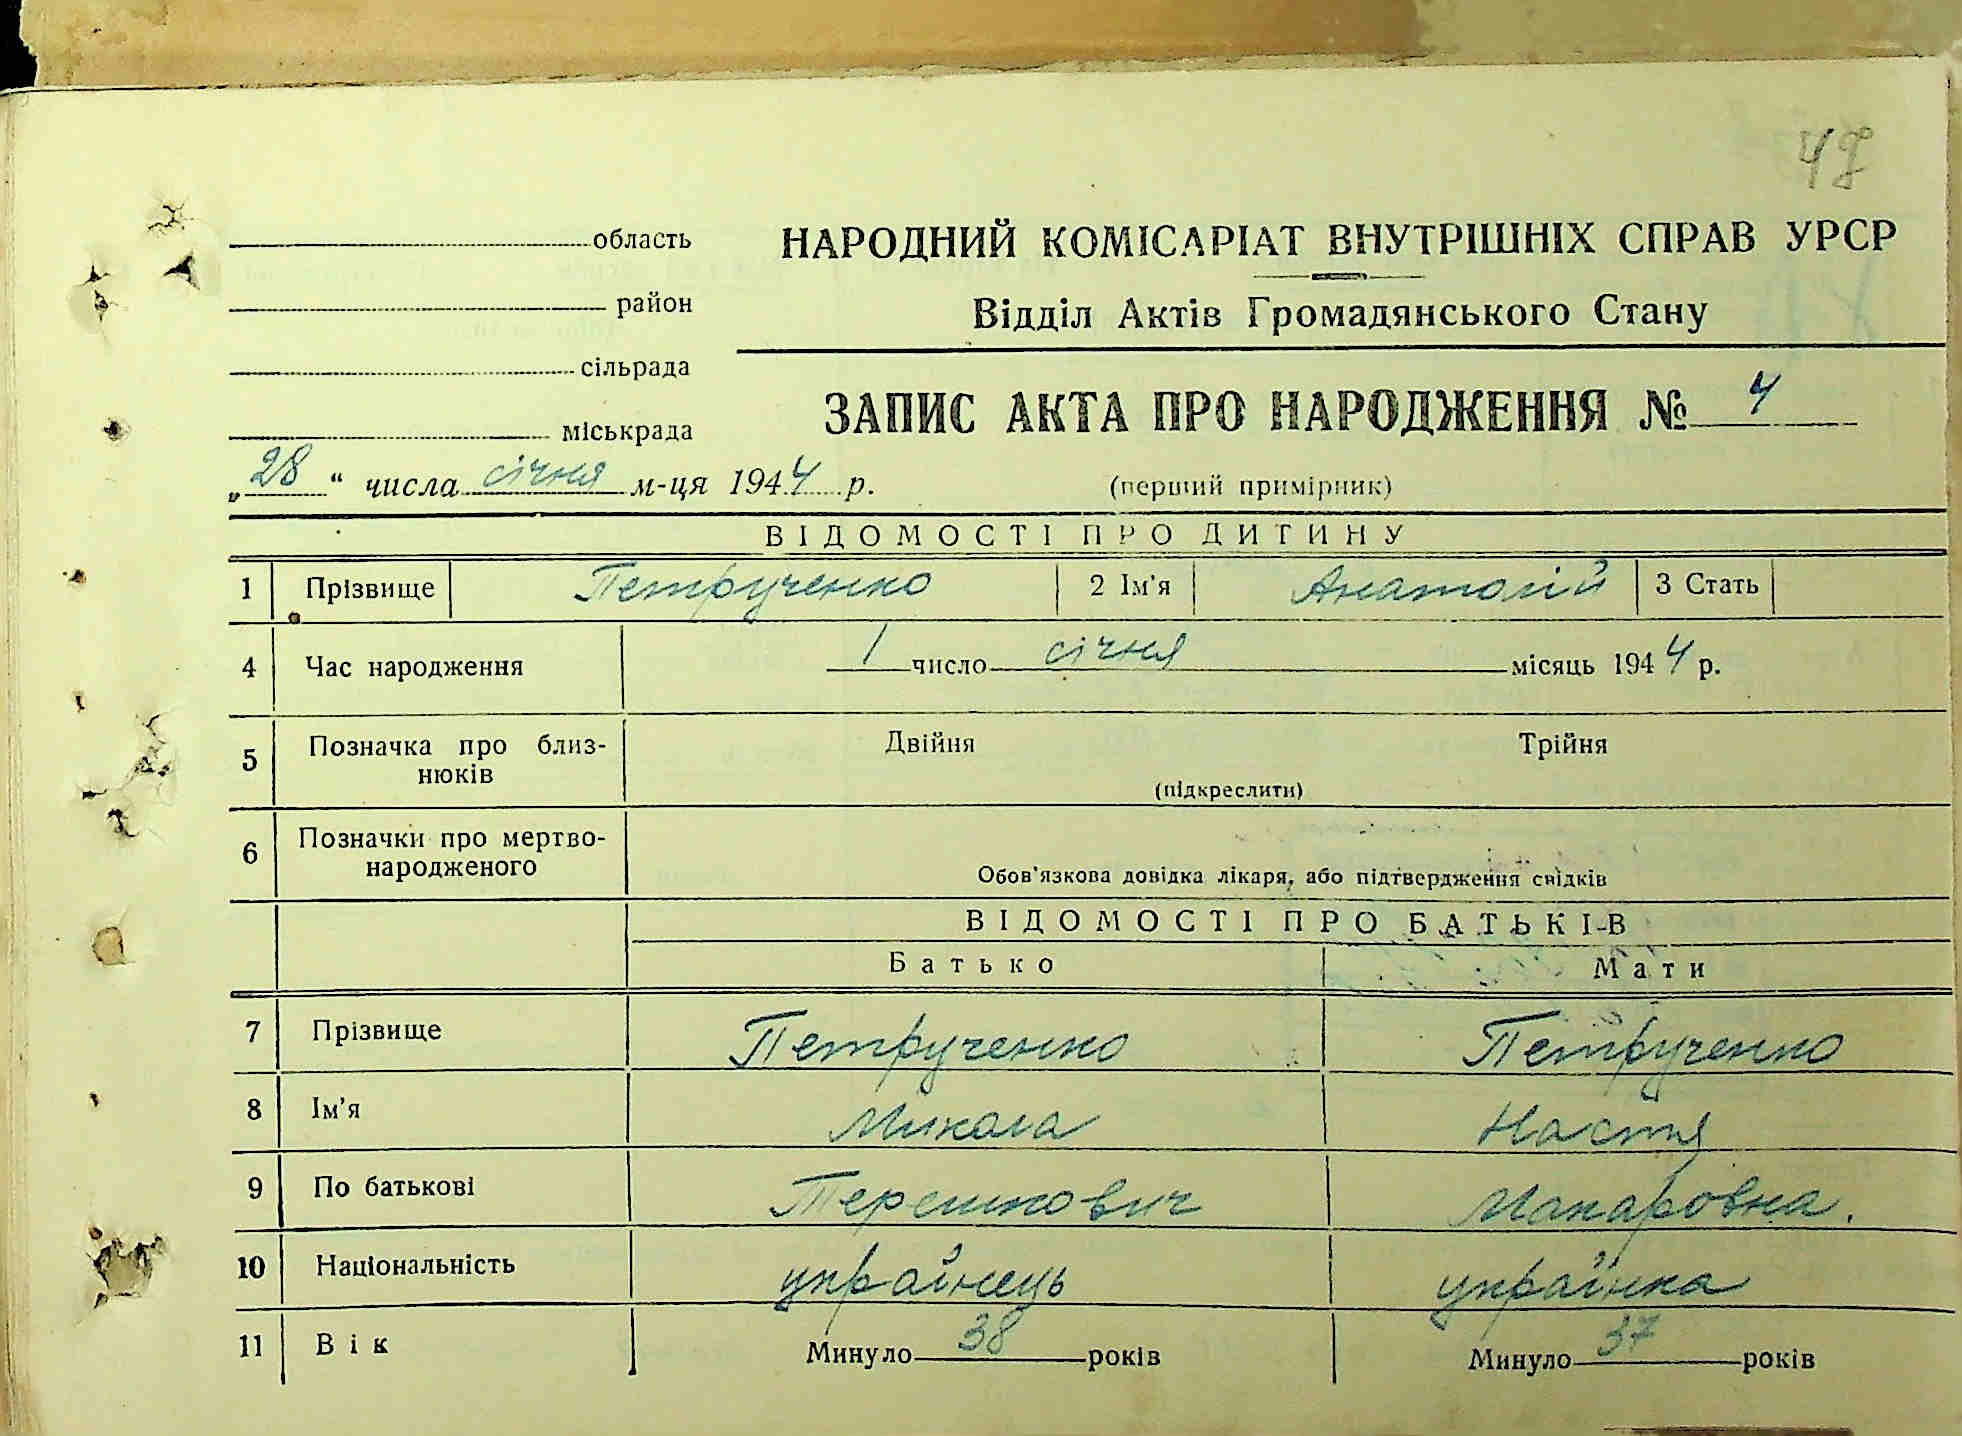 48
область
НАРОДНИЙ КОМІСАРІАТ ВНУТРІШНІХ СПРАВ УРСР
район
Відділ Актів Громадянського Стану
сільрада
ЗАПИС АКТА ПРО НАРОДЖЕННЯ № 4
міськрада
„28“ числа січня м-ця 1944 р.
(перший примірник)
ВІДОМОСТІ ПРО ДИТИНУ
1 Прізвище Петрученко 2 Ім'я Анатолій 3 Стать
4 Час народження 1 число січня місяць 1944 р.
5 Позначка про близ-
нюків
Двійня Трійня
(підкреслити)
6 Позначки про мертво-
народженого
Обов'язкова довідка лікаря, або підтвердження свідків
ВІДОМОСТІ ПРО БАТЬКІВ
Батько Мати
7 Прізвище Петрученко Петрученко
8 Ім'я Микола Настя
9 По батькові Терешкович Макаровна.
10 Національність українець українка
11 Вік Минуло 38 років Минуло 37 років